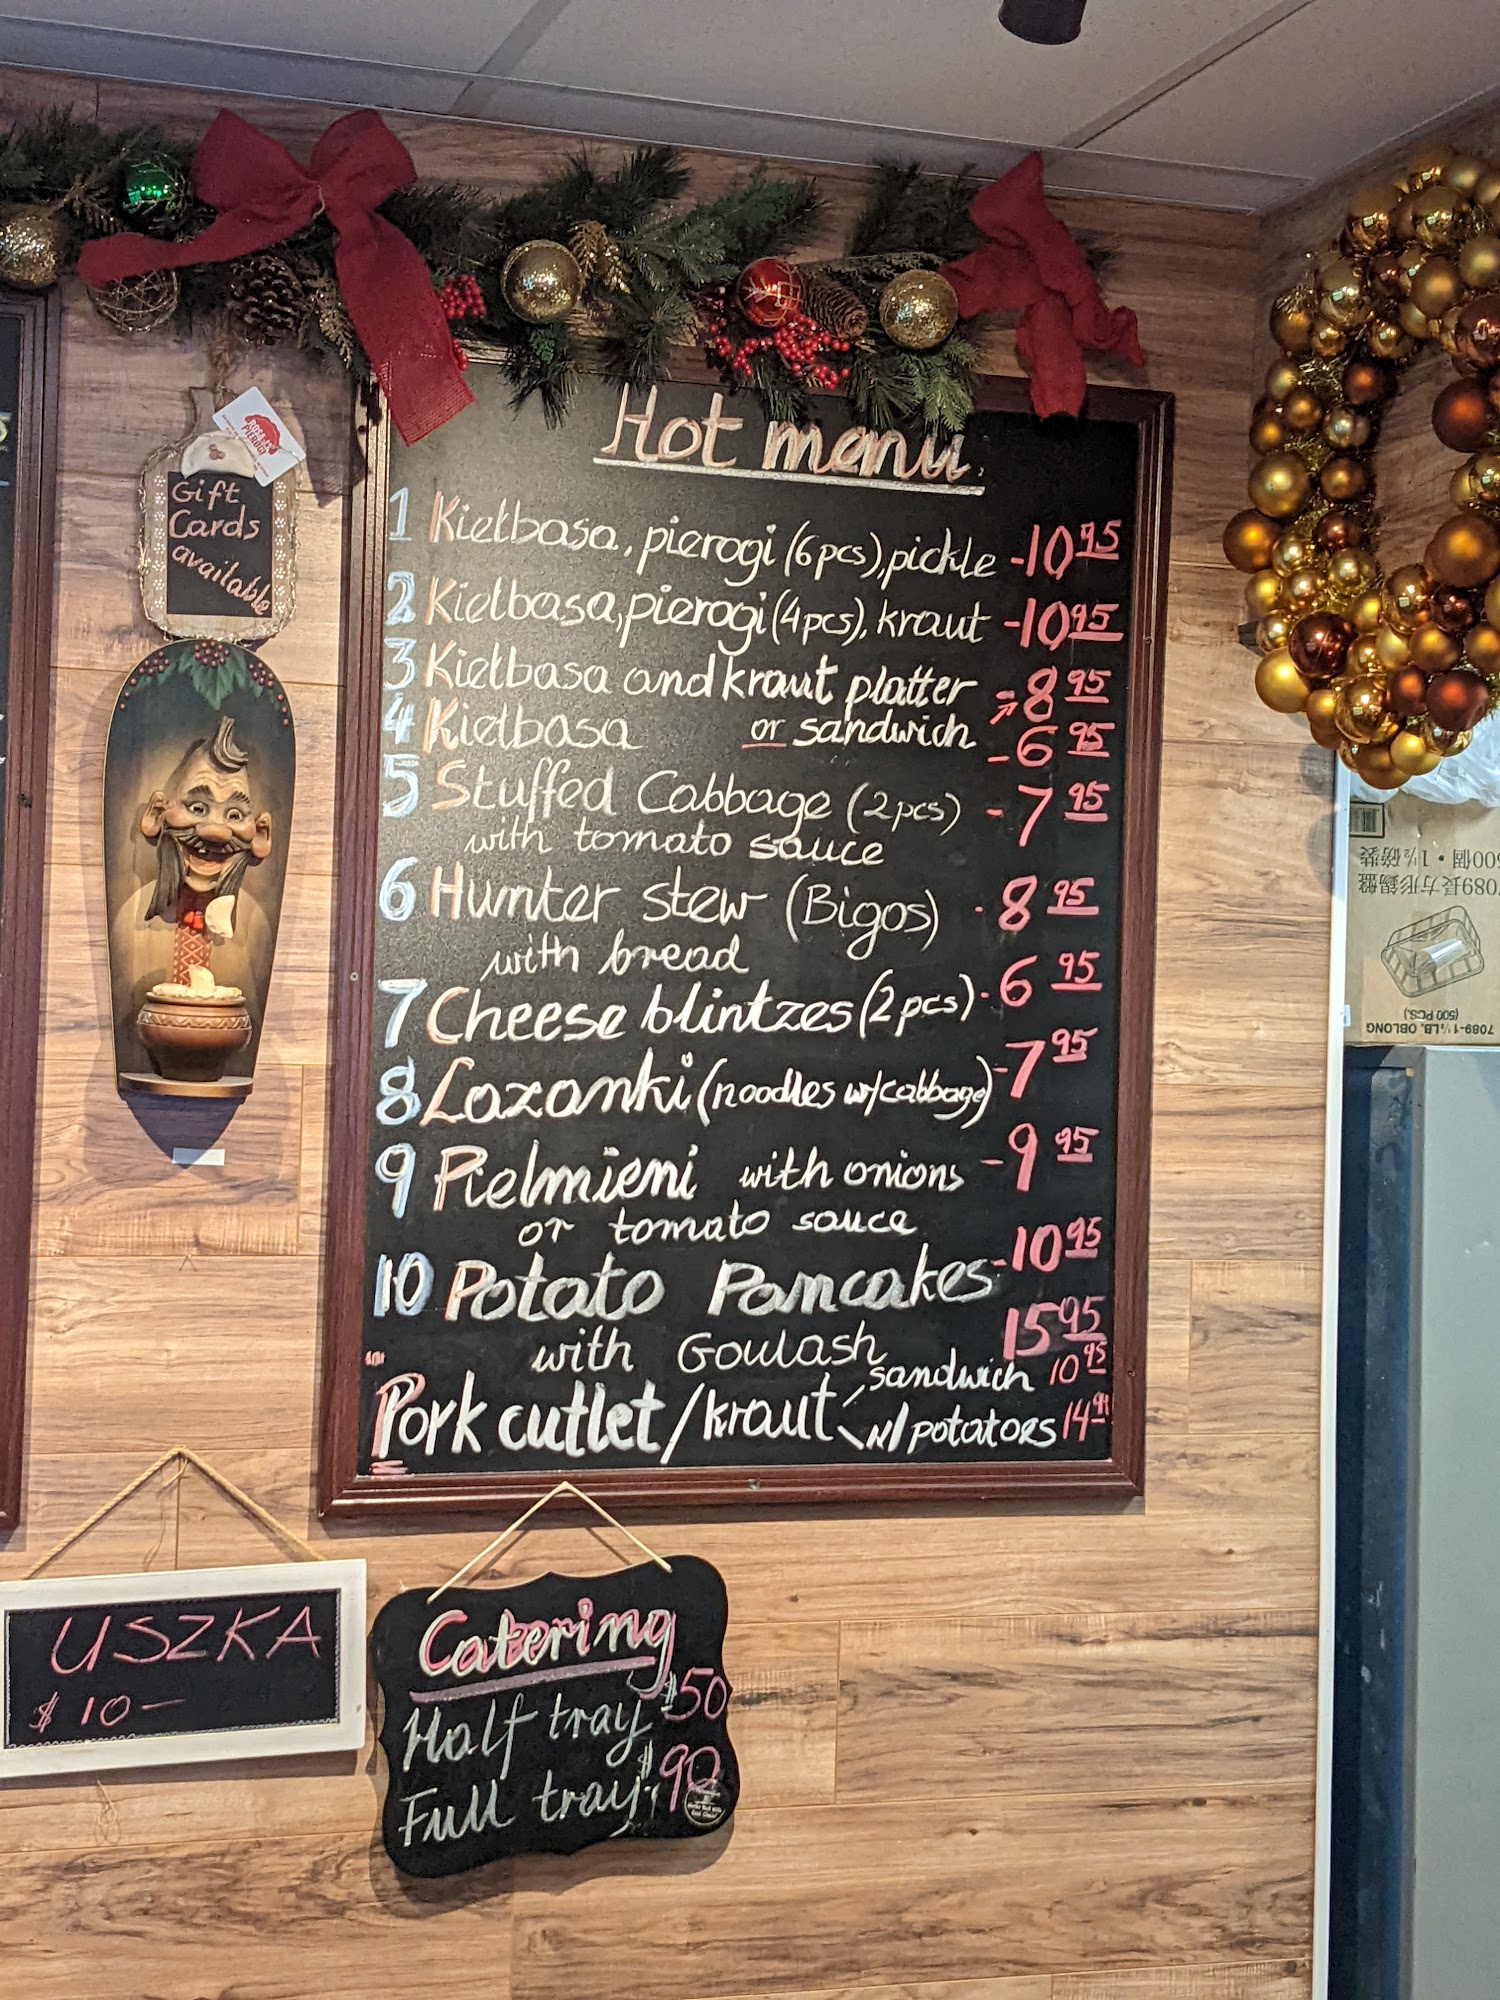 Hot menu
1 Kielbasa, pierogi (6pcs), pickle -10 95
2 Kielbasa, pierogi (4pcs), kraut -10 95
3 Kielbasa and kraut platter - 8 95
or sandwich
4 Kielbasa - 6 95
5 Stuffed Cabbage (2pcs) - 7 95
with tomato sauce
6 Hunter stew (Bigos) - 8 95
with bread
7 Cheese blintzes (2pcs) - 6 95
8 Lazanki (noodles w/cabbage) - 7 95
9 Pielmieni with onions - 9 95
or tomato sauce
10 Potato Pancakes - 10 95
with Goulash 15 95
Pork cutlet / kraut
sandwich 10 95
w/ potatoes 14
Gift
Cards
available
PIEROGI
USZKA
$ 10 -
Catering
Half tray $50
Full tray $90
7089-1½LB. OBLONG
(500 PCS.)